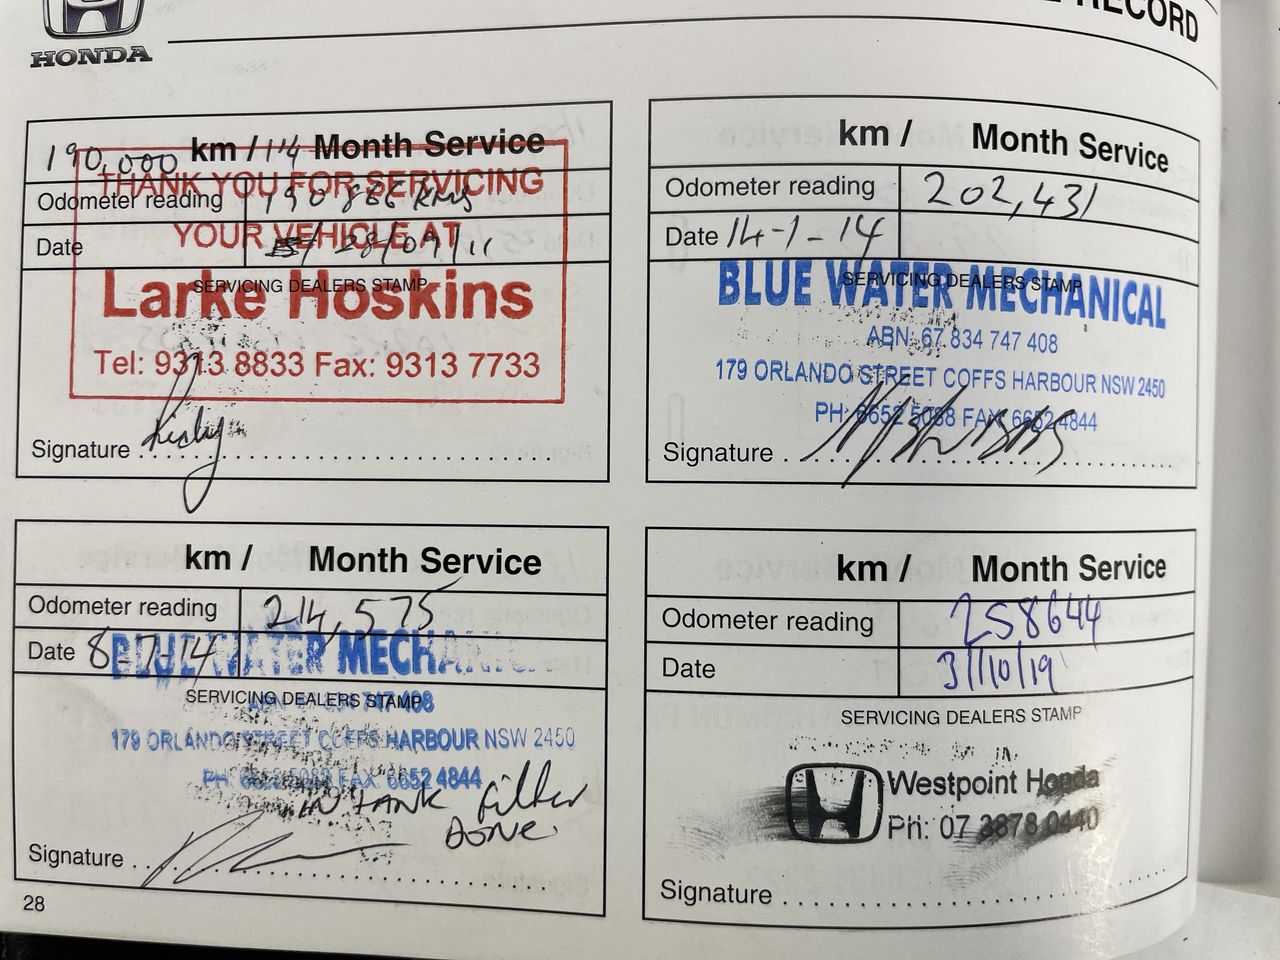 HONDA
RECORD
190,000 km / 114 Month Service
THANK YOU FOR SERVICING
Odometer reading 190 866 KMS
YOUR VEHICLE AT
Date 28/09/11
SERVICING DEALERS STAMP
Larke Hoskins
Tel: 9313 8833 Fax: 9313 7733
Signature
km / Month Service
Odometer reading 202,431
Date 14-1-14
SERVICING DEALERS STAMP
BLUE WATER MECHANICAL
ABN: 67 834 747 408
179 ORLANDO STREET COFFS HARBOUR NSW 2450
PH: 6652 5088 FAX 6652 4844
Signature
km / Month Service
Odometer reading 214,575
Date 8-7-14
BLUE WATER MECHANICAL
SERVICING DEALERS STAMP
747 408
179 ORLANDO STREET COFFS HARBOUR NSW 2450
PH: 6652 5088 FAX 6652 4844
IN TANK Filter
DONE
Signature
km / Month Service
Odometer reading 258644
Date 31/10/19
SERVICING DEALERS STAMP
Westpoint Honda
PH: 07 3878 0440
Signature
28